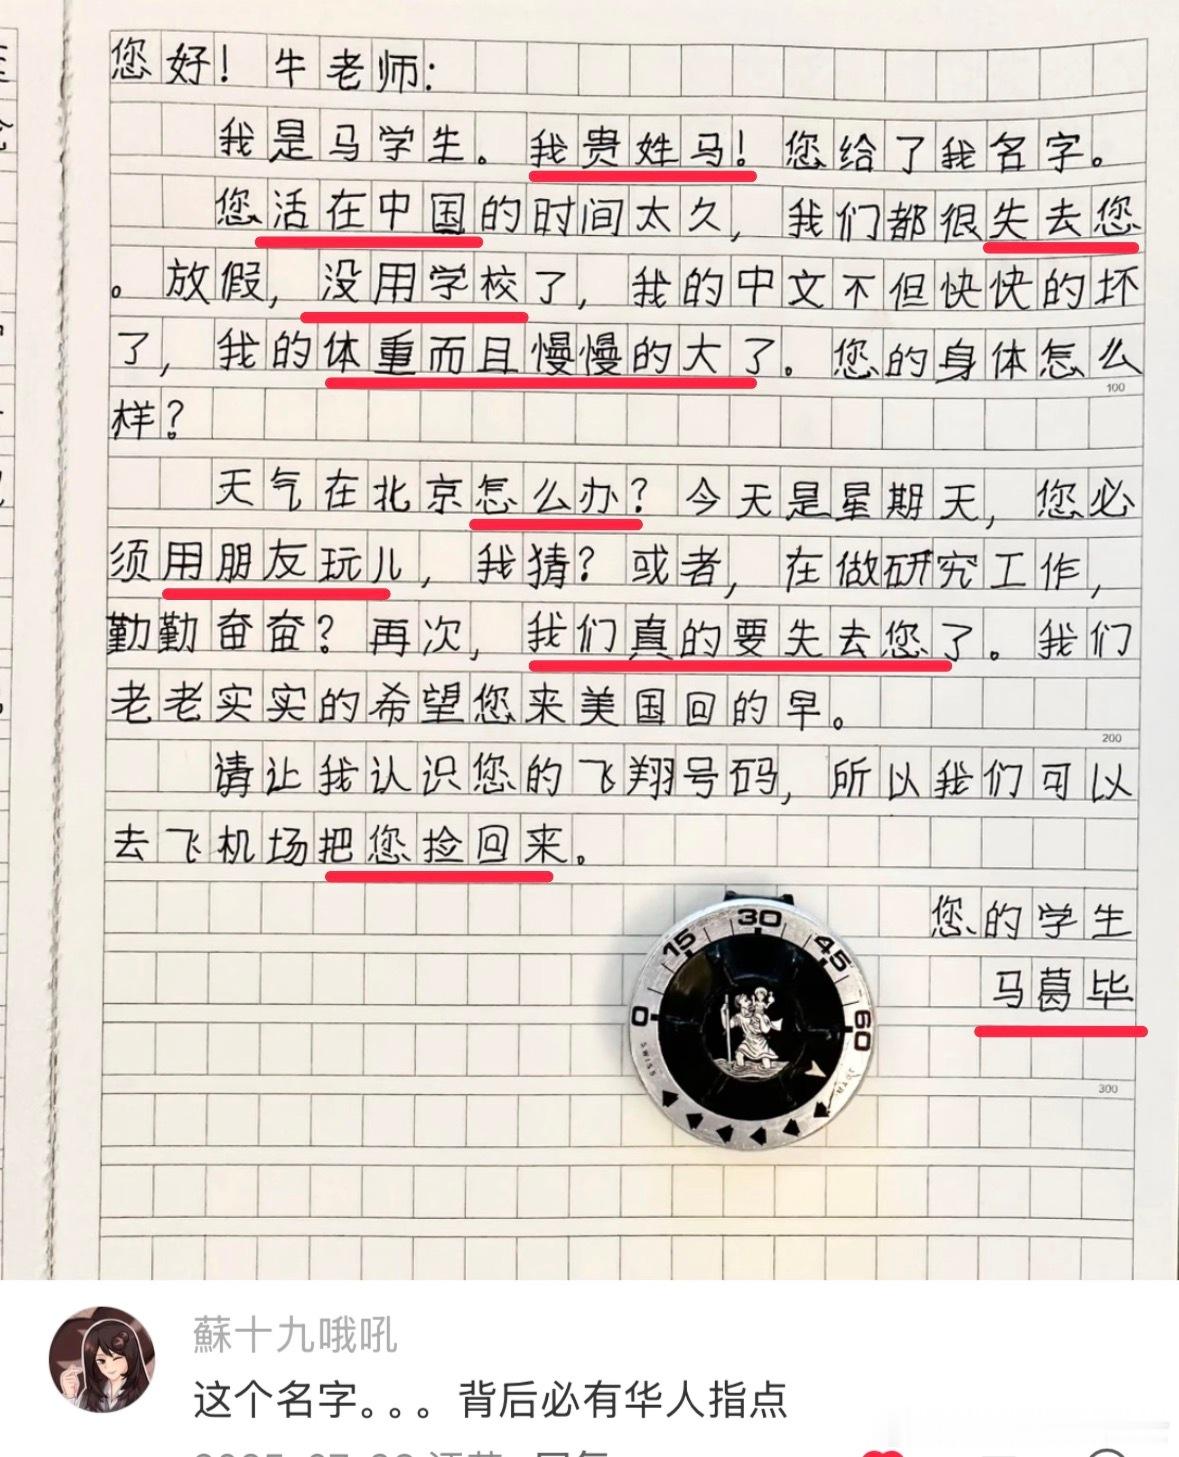 您好！牛老师：
我是马学生。我贵姓马！您给了我名字。
您活在中国的时间太久，我们都很失去您
。放假，没用学校了，我的中文不但快快的坏
了，我的体重而且慢慢的大了。您的身体怎么
100
样？
天气在北京怎么办？今天是星期天，您必
须用朋友玩儿，我猜？或者，在做研究工作，
勤勤奋奋？再次，我们真的要失去您了。我们
老老实实的希望您来美国回的早。
200
请让我认识您的飞翔号码，所以我们可以
去飞机场把您捡回来。
您的学生
马葛毕
300
0 15 30 45 60
SWISS MADE
蘇十九哦吼
这个名字。。。背后必有华人指点